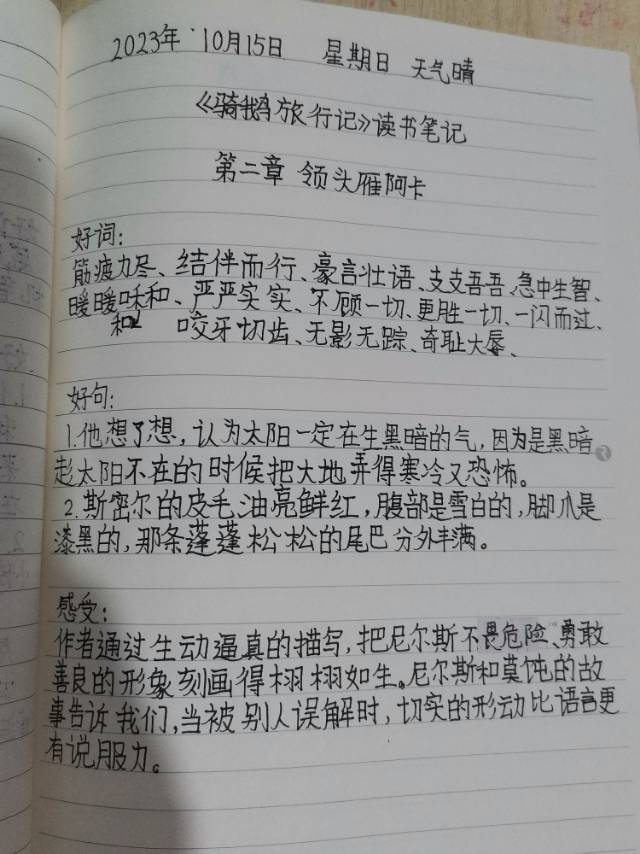 2023年 10月15日 星期日 天气晴
《骑鹅旅行记》读书笔记
第二章 领头雁阿卡
好词:
筋疲力尽、结伴而行、豪言壮语、支支吾吾、急中生智、
暖暖和和、严严实实、不顾一切、更胜一切、一闪而过、
和 咬牙切齿、无影无踪、奇耻大辱、
好句:
1.他想了想,认为太阳一定在生黑暗的气,因为是黑暗
趁太阳不在的时候把大地弄得寒冷又恐怖。
2.斯密尔的皮毛油亮鲜红,腹部是雪白的,脚爪是
漆黑的,那条蓬蓬松松的尾巴分外丰满。
感受:
作者通过生动逼真的描写,把尼尔斯不畏危险、勇敢
善良的形象刻画得栩栩如生。尼尔斯和莫饨的故
事告诉我们,当被别人误解时,切实的形动比语言更
有说服力。